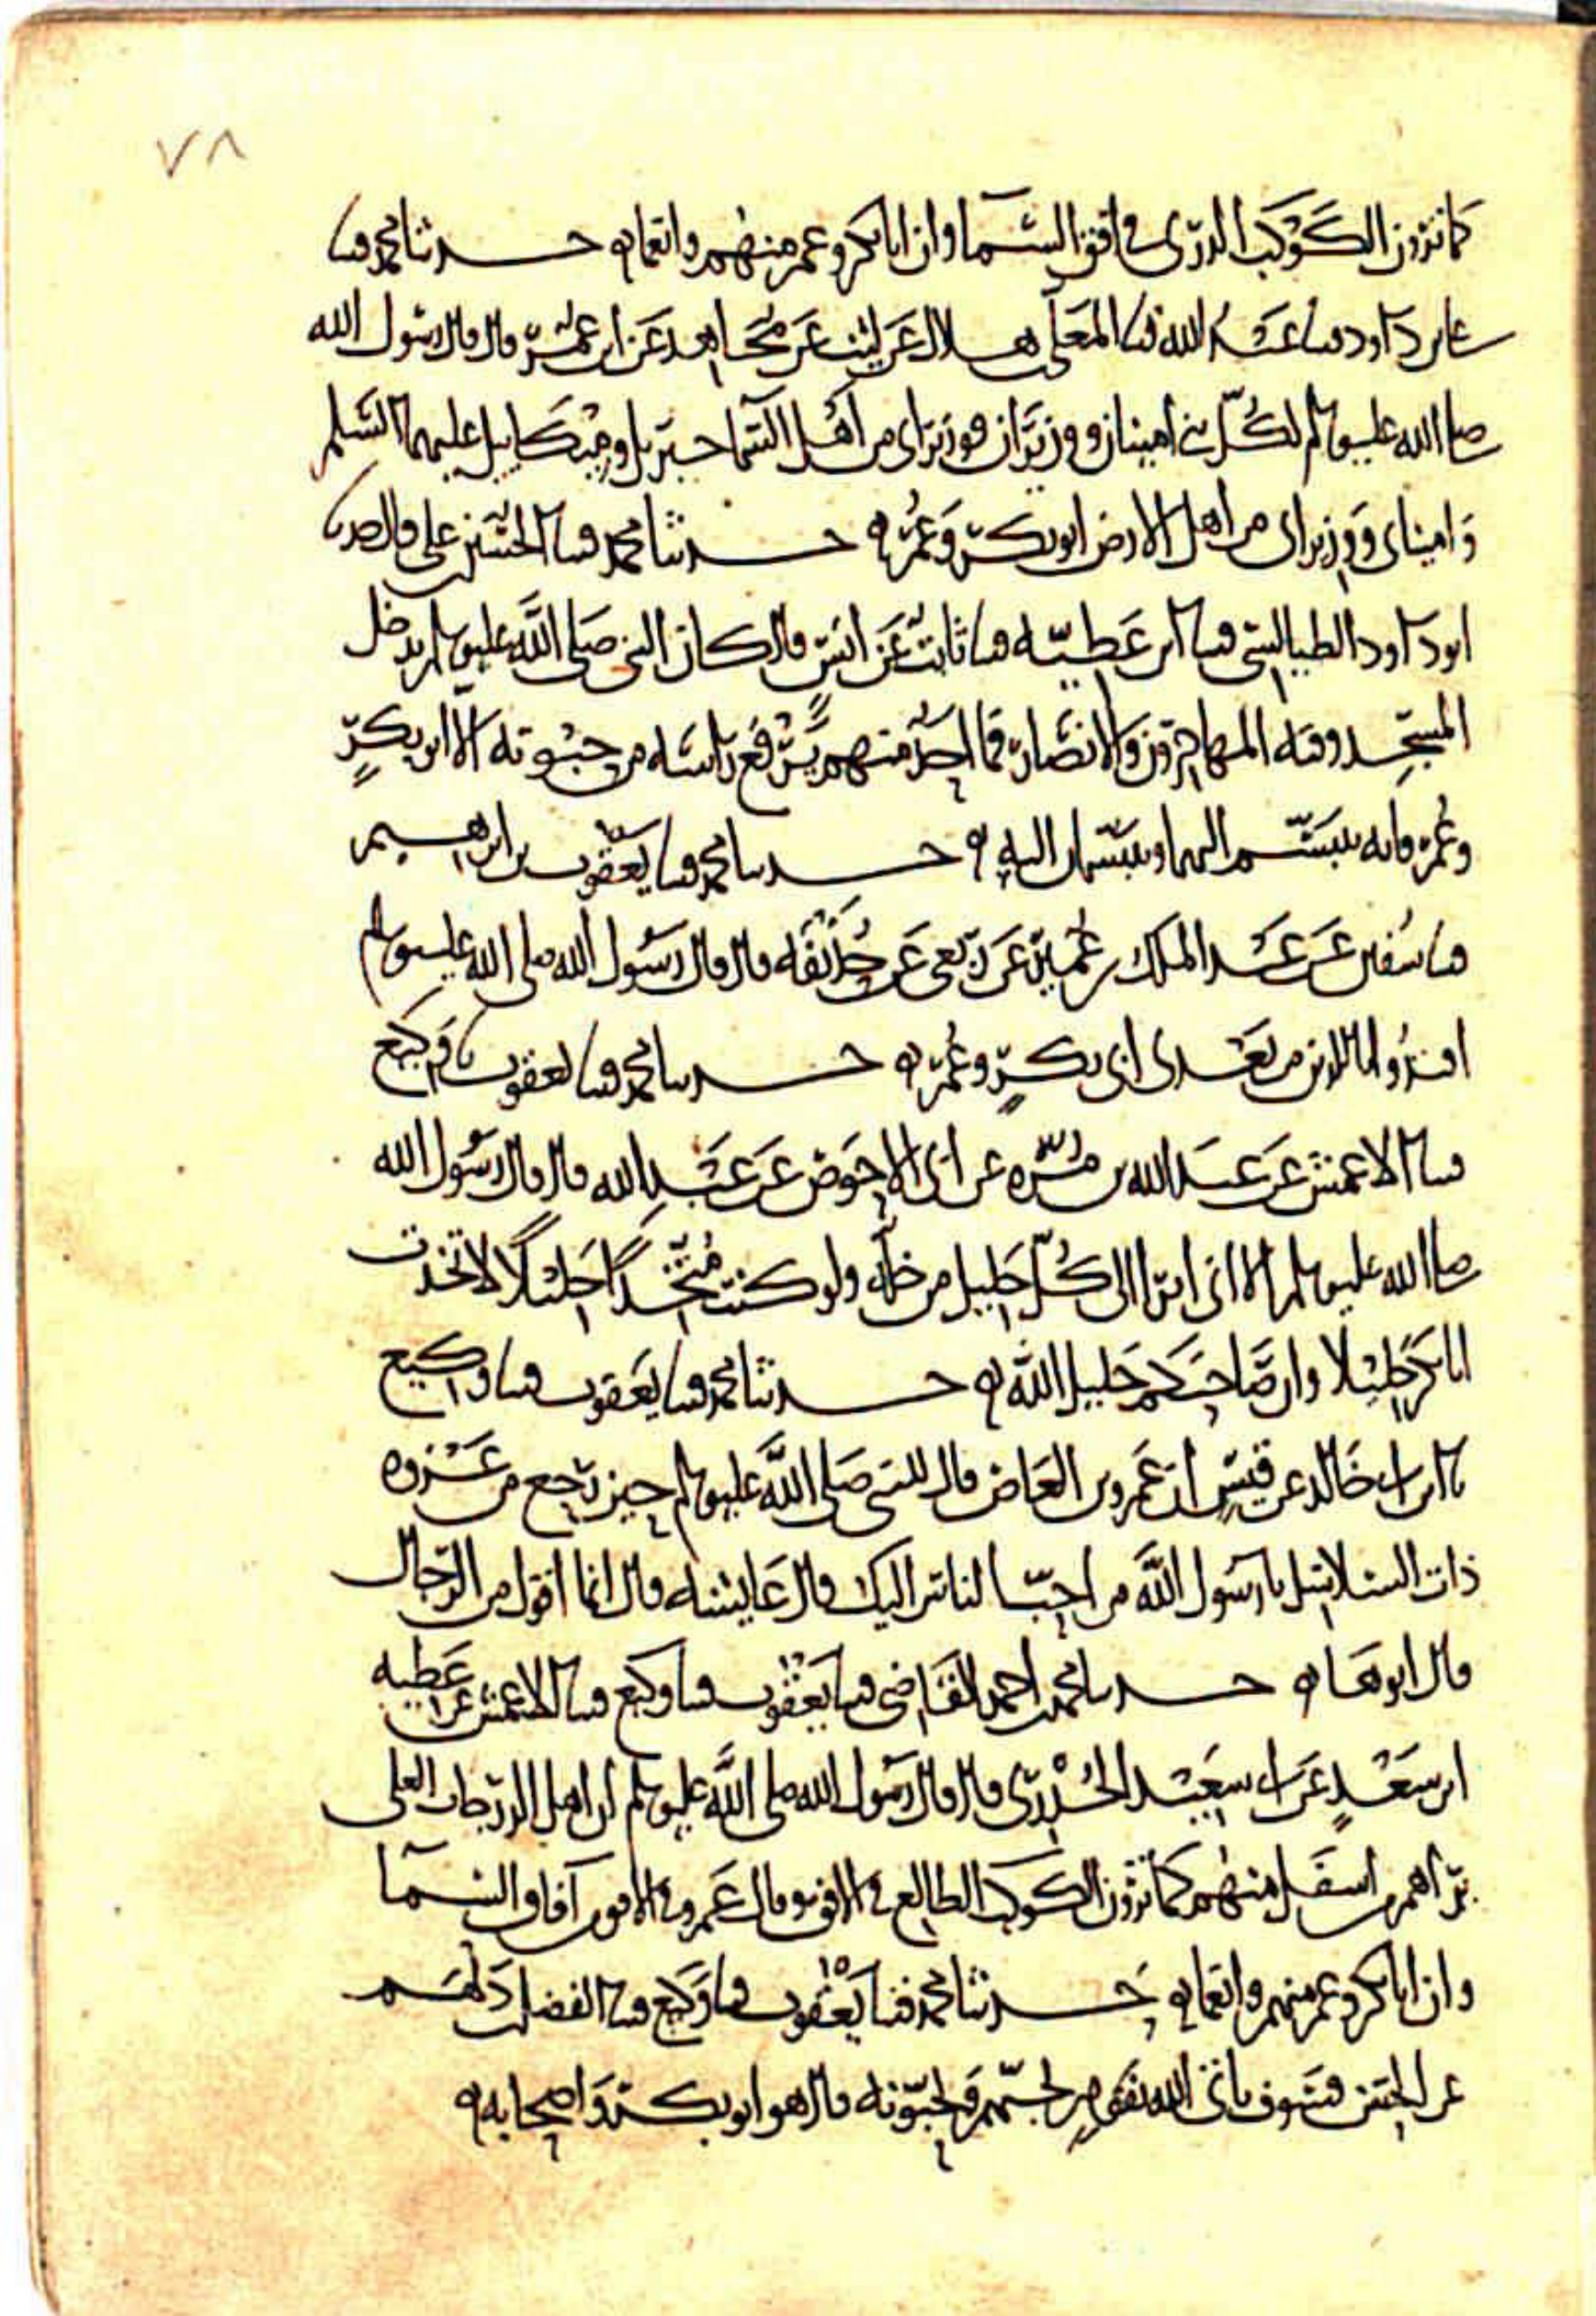 ٧٨
كما ترون الكوكب الدري في افق السما وان ابا بكر وعمر منهم وانعما حدثنا محمد ثنا
داود ثنا عبد الله ثنا المعلى هلال عن ليث عن مجاهد عن ابن عمر قال قال رسول الله
صلى الله عليه وسلم لكل نبي امينان ووزيران فوزيراي من اهل السما جبريل وميكاييل عليهما السلم
واميناى ووزيراى من اهل الارض ابو بكر وعمر حدثنا محمد ثنا الحسين علي
ابو داود الطيالسي ثنا ابن عطيه ثنا ثابت عن انس قال كان النبي صلى الله عليه وسلم يدخل
المسجد وفيه المهاجرون والانصار فما احد منهم يرفع راسه من حبوته الا ابو بكر
وعمر فانه يتبسم اليهما ويتبسمان اليه حدثنا محمد ثنا يعقوب بن ابرهيم
ثنا سفين عن عبد الملك بن عمير عن ربعي عن حذيفه قال قال رسول الله صلى الله عليه وسلم
اقتدوا باللذين من بعدى ابى بكر وعمر حدثنا محمد ثنا يعقوب ثنا وكيع
ثنا الاعمش عن عبد الله بن مره عن ابى الاحوص عن عبد الله قال قال رسول الله
صلى الله عليه وسلم الا انى ابرا الى كل خليل من خله ولو كنت متخذا خليلا لاتخذت
ابا بكر خليلا وان صاحبكم خليل الله حدثنا محمد ثنا يعقوب ثنا وكيع
ثنا ابن ابى خالد عن قيس ان عمرو بن العاص قال للنبي صلى الله عليه وسلم حين رجع من غزوه
ذات السلاسل يا رسول الله من احب الناس اليك قال عايشه قال انما اقول من الرجال
قال ابوها حدثنا محمد بن احمد القاضى ثنا يعقوب ثنا وكيع ثنا الاعمش عن عطيه
ابن سعد عن ابى سعيد الخدرى قال قال رسول الله صلى الله عليه وسلم ان اهل الدرجات العلى
يراهم من اسفل منهم كما ترون الكوكب الطالع في الافق وقال عمرو في الافق من آفاق السما
وان ابا بكر وعمر منهم وانعما حدثنا محمد ثنا يعقوب ثنا وكيع ثنا الفضل بن دلهم
عن الحسن فسوف ياتى الله بقوم يحبهم ويحبونه قال هو ابو بكر واصحابه